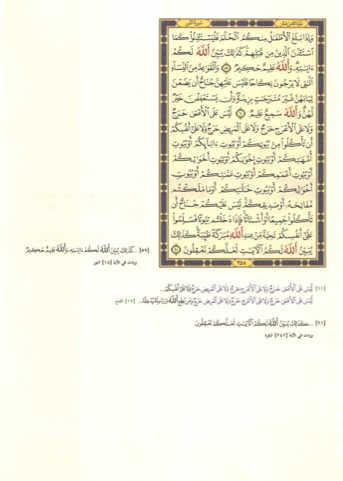 وَإِذَا بَلَغَ الْأَطْفَالُ مِنكُمُ الْحُلُمَ فَلْيَسْتَأْذِنُوا كَمَا
اسْتَأْذَنَ الَّذِينَ مِن قَبْلِهِمْ كَذَٰلِكَ يُبَيِّنُ اللَّهُ لَكُمْ
آيَاتِهِ وَاللَّهُ عَلِيمٌ حَكِيمٌ ٥٩ وَالْقَوَاعِدُ مِنَ النِّسَاءِ
اللَّاتِي لَا يَرْجُونَ نِكَاحًا فَلَيْسَ عَلَيْهِنَّ جُنَاحٌ أَن يَضَعْنَ
ثِيَابَهُنَّ غَيْرَ مُتَبَرِّجَاتٍ بِزِينَةٍ وَأَن يَسْتَعْفِفْنَ خَيْرٌ
لَّهُنَّ وَاللَّهُ سَمِيعٌ عَلِيمٌ ٦٠ لَّيْسَ عَلَى الْأَعْمَىٰ حَرَجٌ
وَلَا عَلَى الْأَعْرَجِ حَرَجٌ وَلَا عَلَى الْمَرِيضِ حَرَجٌ وَلَا عَلَىٰ أَنفُسِكُمْ
أَن تَأْكُلُوا مِن بُيُوتِكُمْ أَوْ بُيُوتِ آبَائِكُمْ أَوْ بُيُوتِ
أُمَّهَاتِكُمْ أَوْ بُيُوتِ إِخْوَانِكُمْ أَوْ بُيُوتِ أَخَوَاتِكُمْ
أَوْ بُيُوتِ أَعْمَامِكُمْ أَوْ بُيُوتِ عَمَّاتِكُمْ أَوْ بُيُوتِ
أَخْوَالِكُمْ أَوْ بُيُوتِ خَالَاتِكُمْ أَوْ مَا مَلَكْتُم
مَّفَاتِحَهُ أَوْ صَدِيقِكُمْ لَيْسَ عَلَيْكُمْ جُنَاحٌ أَن
تَأْكُلُوا جَمِيعًا أَوْ أَشْتَاتًا فَإِذَا دَخَلْتُم بُيُوتًا فَسَلِّمُوا
عَلَىٰ أَنفُسِكُمْ تَحِيَّةً مِّنْ عِندِ اللَّهِ مُبَارَكَةً طَيِّبَةً كَذَٰلِكَ
يُبَيِّنُ اللَّهُ لَكُمُ الْآيَاتِ لَعَلَّكُمْ تَعْقِلُونَ ٦١
٣٥٨
[٥٩] ...كَذَٰلِكَ يُبَيِّنُ اللَّهُ لَكُمْ آيَاتِهِ وَاللَّهُ عَلِيمٌ حَكِيمٌ
وردت في الآية [٥٨] النور
[٦١] لَّيْسَ عَلَى الْأَعْمَىٰ حَرَجٌ وَلَا عَلَى الْأَعْرَجِ حَرَجٌ وَلَا عَلَى الْمَرِيضِ حَرَجٌ وَلَا عَلَىٰ أَنفُسِكُمْ...
لَّيْسَ عَلَى الْأَعْمَىٰ حَرَجٌ وَلَا عَلَى الْأَعْرَجِ حَرَجٌ وَلَا عَلَى الْمَرِيضِ حَرَجٌ وَمَن يُطِعِ اللَّهَ وَرَسُولَهُ يُدْخِلْهُ... [١٧] الفتح
[٦١] ...كَذَٰلِكَ يُبَيِّنُ اللَّهُ لَكُمُ الْآيَاتِ لَعَلَّكُمْ تَعْقِلُونَ
وردت في الآية [٢٤٢] البقرة